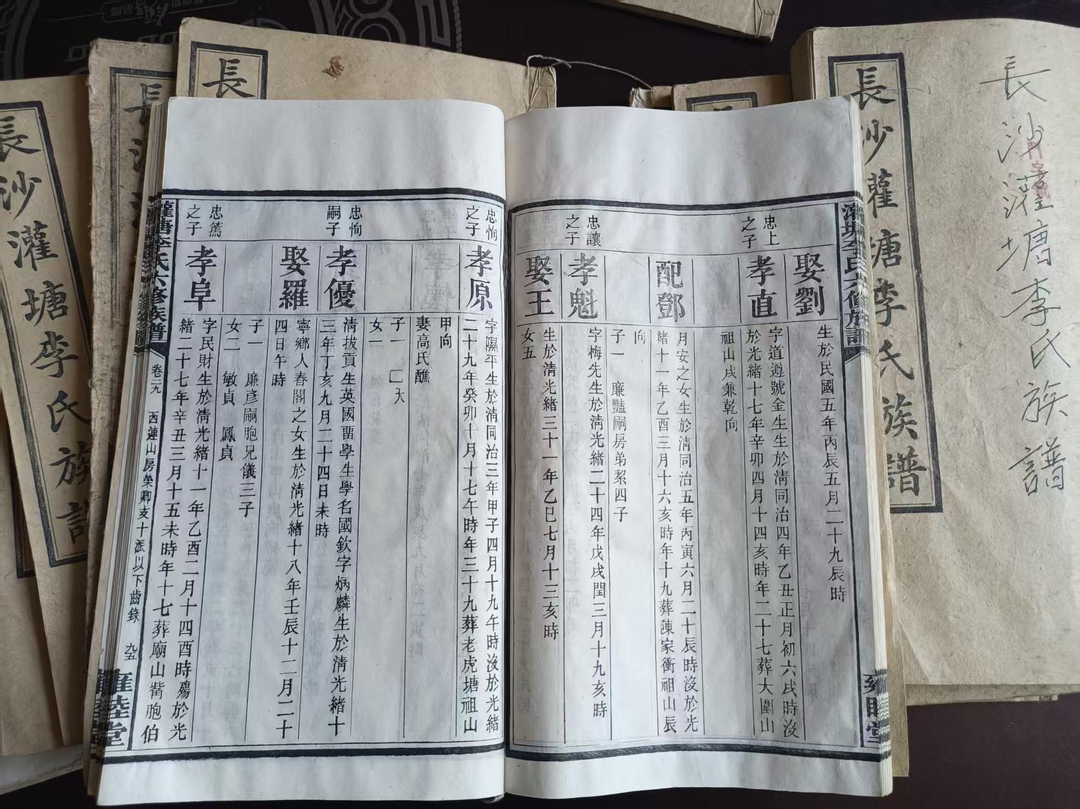 長沙灌塘李氏族譜
長沙灌塘李氏族譜
娶劉
生於民國五年丙辰五月二十九辰時
忠上
之子
孝直
字道遵號金生生於清同治四年乙丑正月初六戌時沒
於光緒十七年辛卯四月十四亥時年二十七葬大圍山
祖山戌兼乾向
配鄧
月安之女生於清同治五年丙寅六月二十辰時沒於光
緒十一年乙酉三月十六亥時年十九葬陳家衝祖山辰
子一 廉豔嗣房弟絜四子
忠讓
之子
孝魁
字梅先生於清光緒二十四年戊戌閏三月十九亥時
娶王
生於清光緒三十一年乙巳七月十三亥時
女五
忠恂
之子
孝原
字隰平生於清同治三年甲子四月十九午時沒於光緒
二十九年癸卯十月十七午時年三十九葬老虎塘祖山
甲向
妻高氏醮
子一
女一
忠恂
嗣子
孝優
清拔貢生英國留學生學名國欽字炳麟生於清光緒十
三年丁亥九月二十四日未時
娶羅
寧鄉人春閣之女生於清光緒十八年壬辰十二月二十
四日午時
子一 廉彥嗣胞兄儀三子
女二 敏貞 鳳貞
忠篤
之子
孝阜
字民財生於清光緒十一年乙酉二月十四酉時殤於光
緒二十七年辛丑三月十五未時年十七葬廟山嘴胞伯
灌塘李氏六修族譜
卷二九
西蓮山房榮卿支十派以下齒錄
九五
雍睦堂
長沙灌塘李氏族